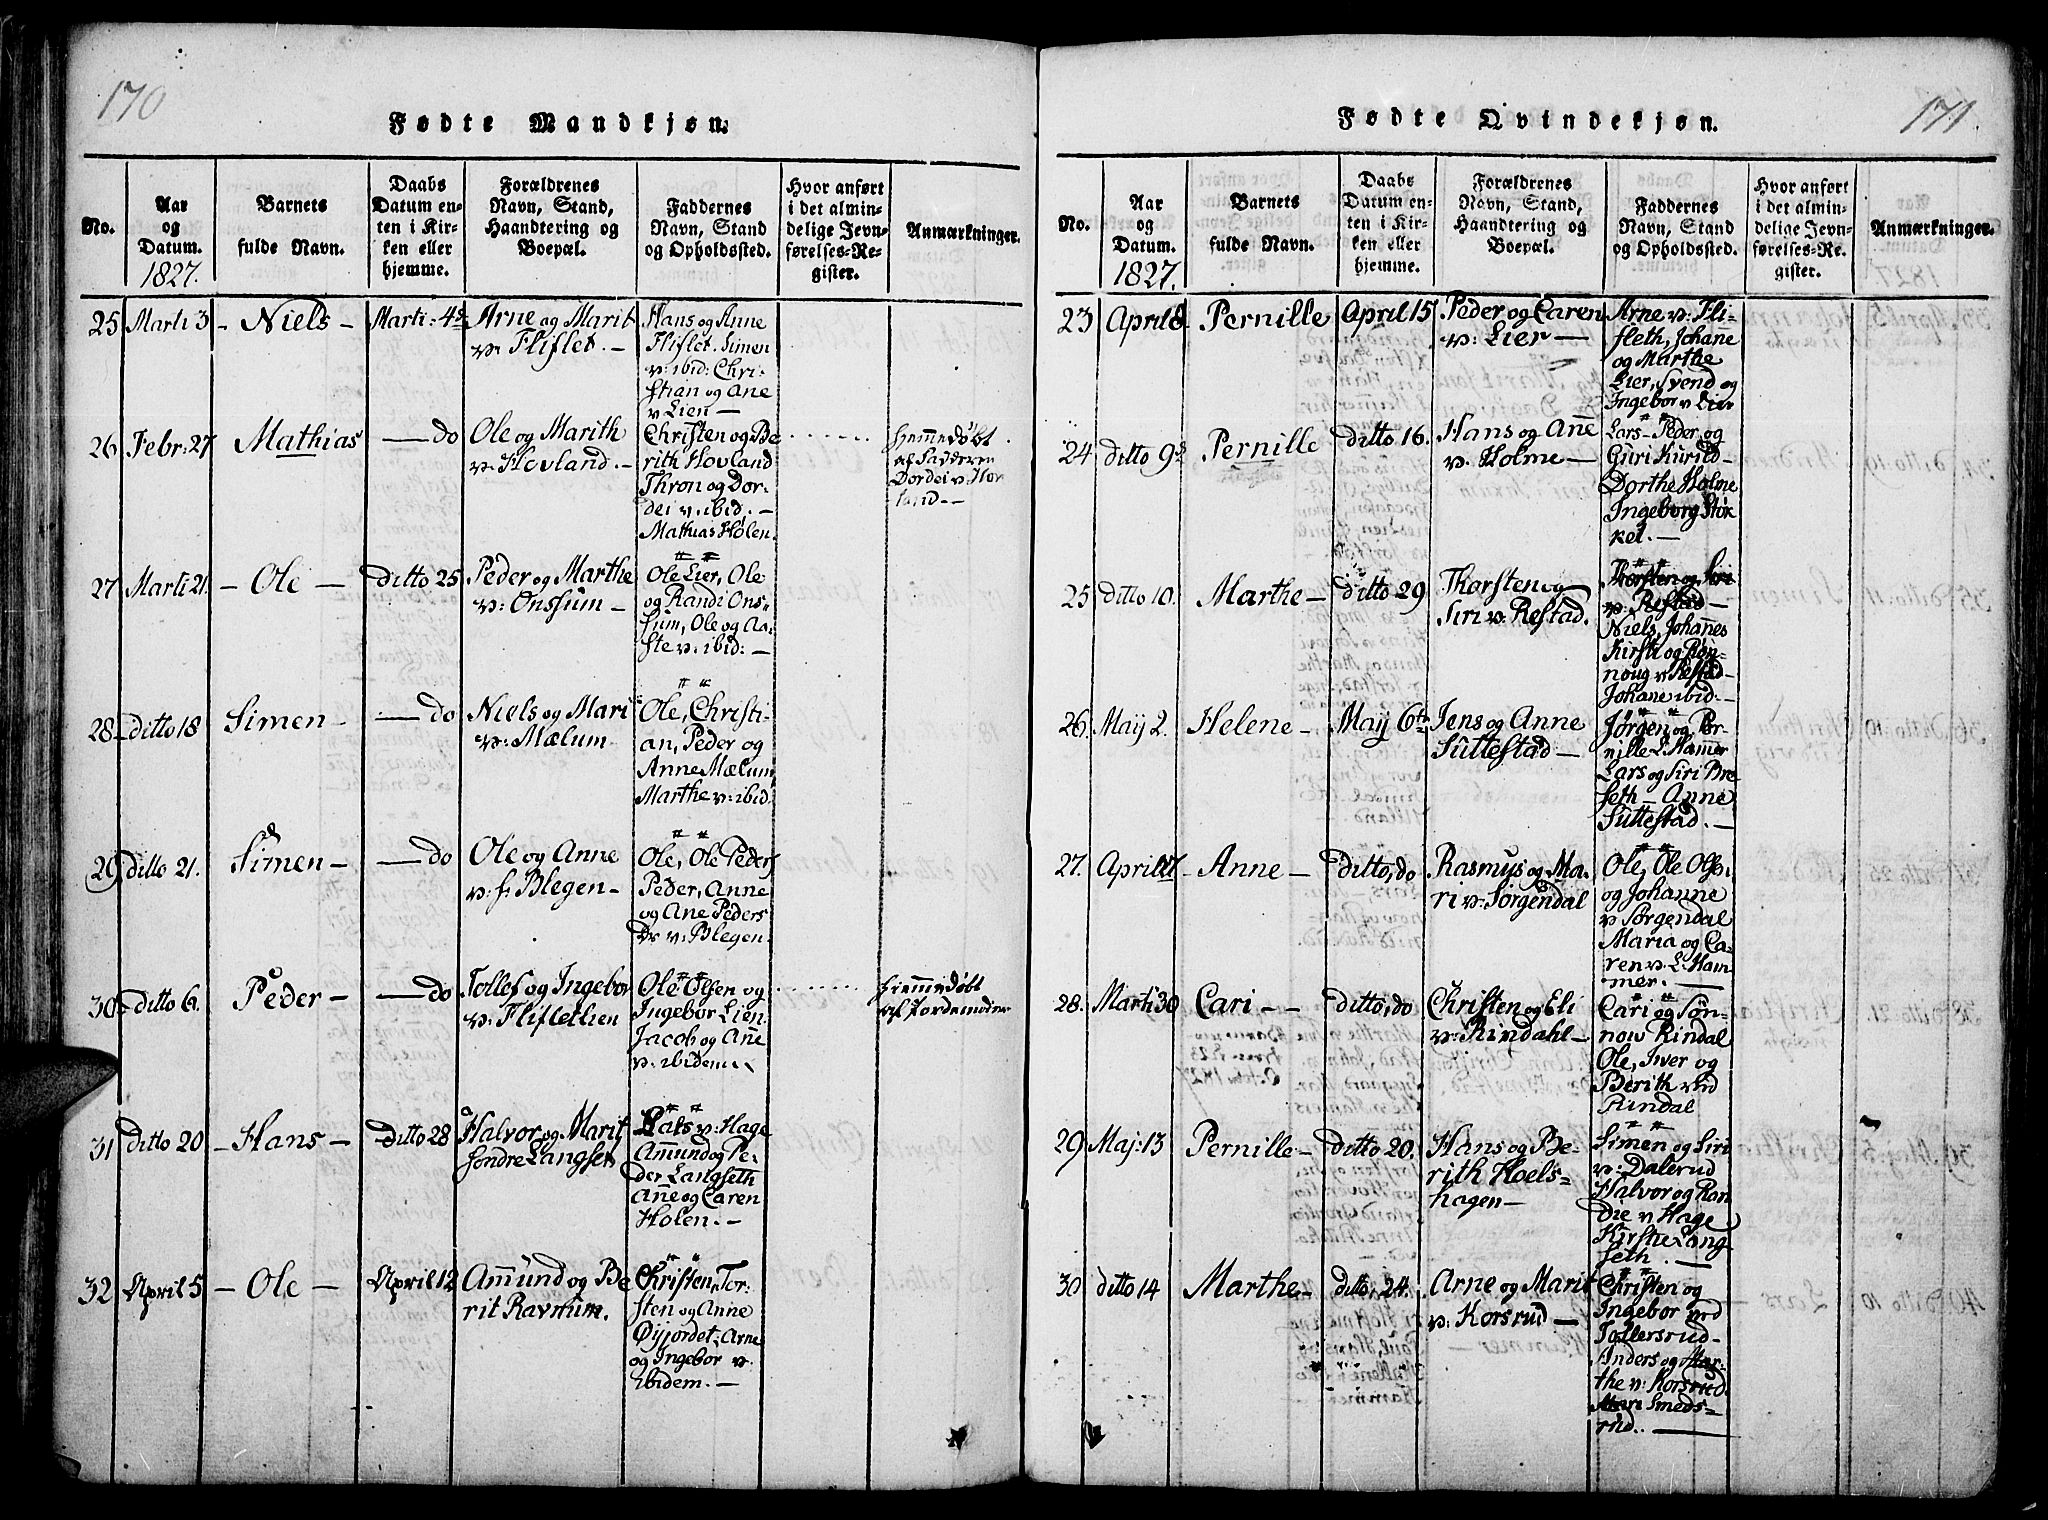 170
Fødte Mandkjøn.
No.
Aar
og
Datum.
1827.
Barnets
fulde Navn.
Daabs
Datum en-
ten i Kir-
ken eller
hjemme.
Forældrenes
Navn, Stand,
Haandtering og
Boepæl.
Faddernes
Navn, Stand
og Opholdssted.
Hvor anført
i det almin-
delige Jevn-
førelses-Re-
gister.
Anmærkninger.
25
Marti 3
- Niels -
Marti: 4de
Arne og Marit
v: Fliflet. -
Hans og Anne
Fliflet. Simen
v: ibid: Chri-
stian og Ane
v Lien -
26
Febr: 27
Mathias
- do
Ole og Marith
v: Hovland. -
Christen og Be
rith Hovland
Thron og Dor-
dei v: ibid. -
Mathias Holen.
Hiemmedøbt
af Fadderen
Dordei v: Hov
land -
27
Marti 21.
- Ole -
ditto 25
Peder og Marthe
v: Onssum -
Ole Lier, Ole
og Randi Ons-
sum, Ole og Aa-
ste v: ibid: -
28
ditto 18
Simen -
- do
Niels og Mari
v: Mælum
Ole, Christi-
an, Peder og
Anne Mælum
Marthe v: ibid.
29
ditto 21.
Simen -
- do
Ole og Anne
v: f: Blegen -
Ole, Ole Peders
Peder, Anne
og Ane Peders
Dr v: Blegen.
30
ditto 6.
Peder -
- do
Tollef og Ingebor
v: Flifletlien
Ole Olsen og
Ingebor Lien
Jacob og Ane
v: ibidem.
Hiemmedøbt
af Jordemoder
31
ditto 20
- Hans -
ditto 28
Halvor og Marit
søndre Langset
Lars v: Hage
Amund og Pe-
der Langseth
Ane og Caren
Holen. -
32
April 5
- Ole -
April 12
Amund og Be
rit Ravnum.
Christen, Tor-
sten og Anne
Øyjordet; Arne
og Ingebor v.
ibidem. -
171.
Fødte Qvindekjøn.
No.
Aar
og
Datum.
1827.
Barnets
fulde Navn.
Daabs
Datum en-
ten i Kir-
ken eller
hjemme.
Forældrenes
Navn, Stand,
Haandtering og
Boepæl.
Faddernes
Navn, Stand
og Opholdssted.
Hvor anført
i det almin-
delige Jevn-
førelses-Re-
gister.
Anmærkninger.
23
April 8
Pernille
April 15
Peder og Caren
v: Lier -
Arne v: Fli-
fleth, Johane
og Marthe
Lier, Svend og
Ingebor v Lier
24
ditto 9de
Pernille
ditto 16.
Hans og Ane
v: Holme -
Lars - Peder og
Guri Kurud -
Dorthe Holme
Ingeborg Stok
kel. -
25
ditto 10.
Marthe -
ditto 29
Thorsten og
Siri v: Restad.
Thorsten og Siri
v: Restad -
Niels, Johannes
Kirsti og Røn-
noug v: Restad -
Johane ibid. -
26
Maij 2.
Helene -
Maij 6te
Jens og Anne
Suttestad -
Jørgen og Per-
nille L: Hamer
Lars og Siri Bre
seth - Anne
Suttestad. -
27.
April 27
- Anne -
ditto, do
Rasmus og Ma-
ri v: Sørgendal
Ole, Ole Ols:
og Johanne
v Sørgendal
Maria og Ca-
ren v: L: Ham-
mer. -
28.
Marti 30
Cari -
ditto, do
Christen og Eli
v: Rindahl -
Cari og Søn-
now Rindal
Ole, Iver og
Berith ved
Rindal
29
Maj: 13
Pernille -
ditto 20.
Hans og Be-
rith Hoels-
hagen -
Simen og Siri
v: Dalerud
Halvor og Ran
die v Hage
Kirstie Lang-
seth. -
30
ditto 14
Marthe -
ditto, 24.
Arne og Marit
v: Korsrud -
Christen og
Ingebor ved
Tollersrud -
Anders og Mar-
the v: Korsrud.
Mari Smeds-
rud. -